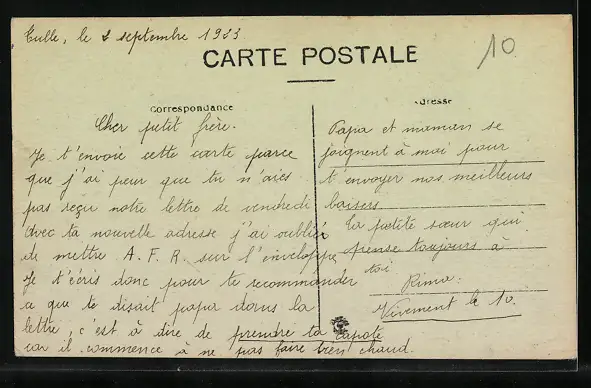 Tulle, le 2 septembre 1923
CARTE POSTALE
10
Correspondance
Adresse
Cher petit frère.
Je t'envoie cette carte parce
que j'ai peur que tu n'aies
pas reçu notre lettre de vendredi
avec ta nouvelle adresse j'ai oublié
de mettre A. F. R. sur l'enveloppe
Je t'écris donc pour te recommander
ce que te disait papa dans la
lettre, c'est à dire de prendre ta capote
car il commence à ne pas faire très chaud.
Papa et maman se
joignent à moi pour
t'envoyer nos meilleurs
baisers
Ta petite sœur qui
pense toujours à
toi
Rima.
Vivement le 10.